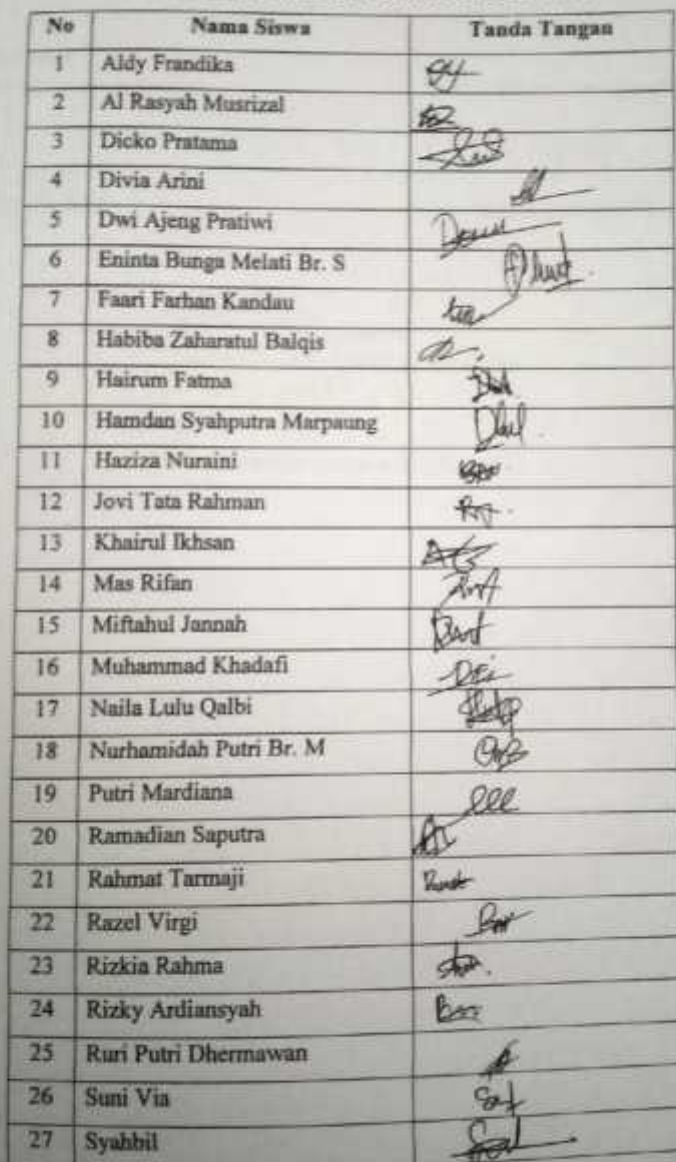 No Nama Siswa Tanda Tangan
1 Aldy Frandika
2 Al Rasyah Musrizal
3 Dicko Pratama
4 Divia Arini
5 Dwi Ajeng Pratiwi
6 Eninta Bunga Melati Br. S
7 Faari Farhan Kandau
8 Habiba Zaharatul Balqis
9 Hairum Fatma
10 Hamdan Syahputra Marpaung
11 Haziza Nuraini
12 Jovi Tata Rahman
13 Khairul Ikhsan
14 Mas Rifan
15 Miftahul Jannah
16 Muhammad Khadafi
17 Naila Lulu Qalbi
18 Nurhamidah Putri Br. M
19 Putri Mardiana
20 Ramadian Saputra
21 Rahmat Tarmaji
22 Razel Virgi
23 Rizkia Rahma
24 Rizky Ardiansyah
25 Ruri Putri Dhermawan
26 Suni Via
27 Syahbil